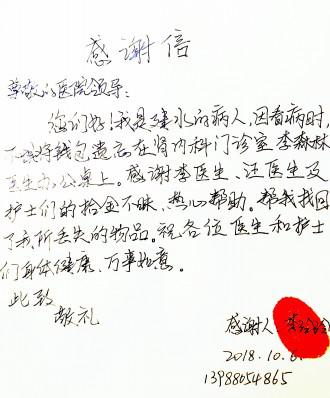 感谢信
尊敬的医院领导：
您们好！我是建水的病人，因看病时，
不误将钱包遗忘在肾内科门诊室李森林
医生办公桌上。感谢李医生、汪医生及
护士们的拾金不昧、热心帮助，帮我找回
了我所丢失的物品。祝各位医生和护士
们身体健康、万事如意。
此致
敬礼
感谢人：李
2018.10.6.
13988054865